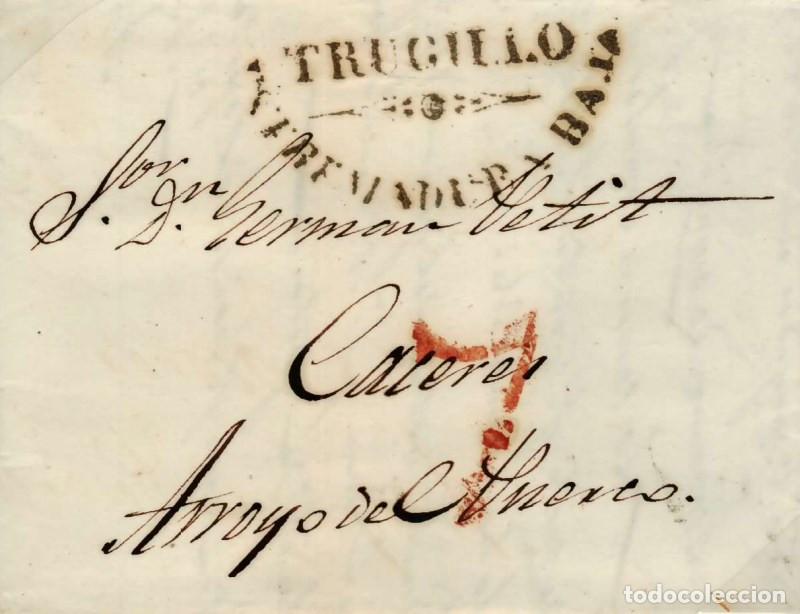 TRUGILLO
ESTREMADURA BAJA
Sor. Dn. German Petit
Caceres
7
Arroyo del Puerco.
todocoleccion
todocoleccion.net